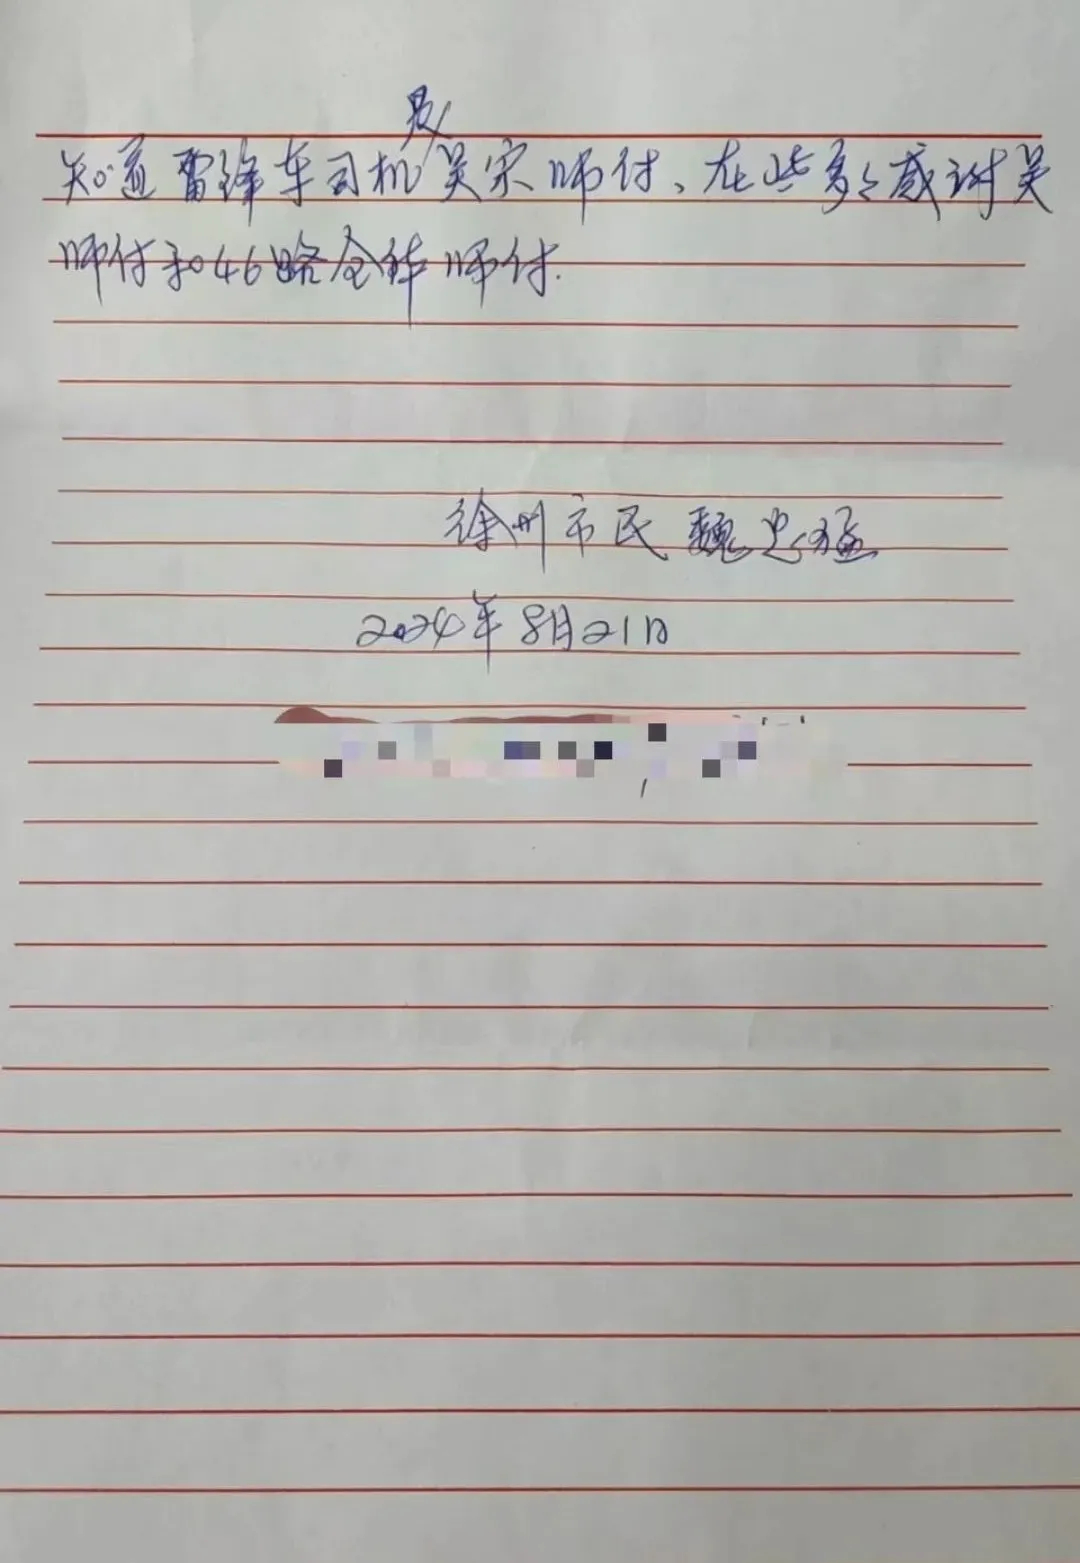 知道雷锋车司机是吴宋师付、在些多多感谢吴
师付和046路全体师付.
徐州市民 魏忠猛
2024年8月21日